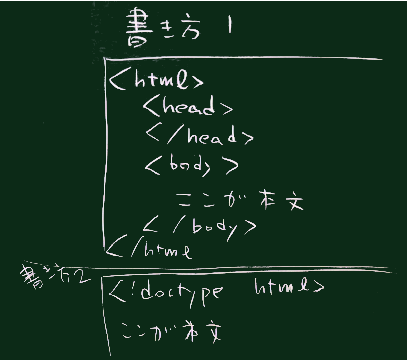 書き方 1
<html>
<head>
</head>
<body>
ここが本文
</body>
</html
書き方2
<!doctype html>
ここが本文